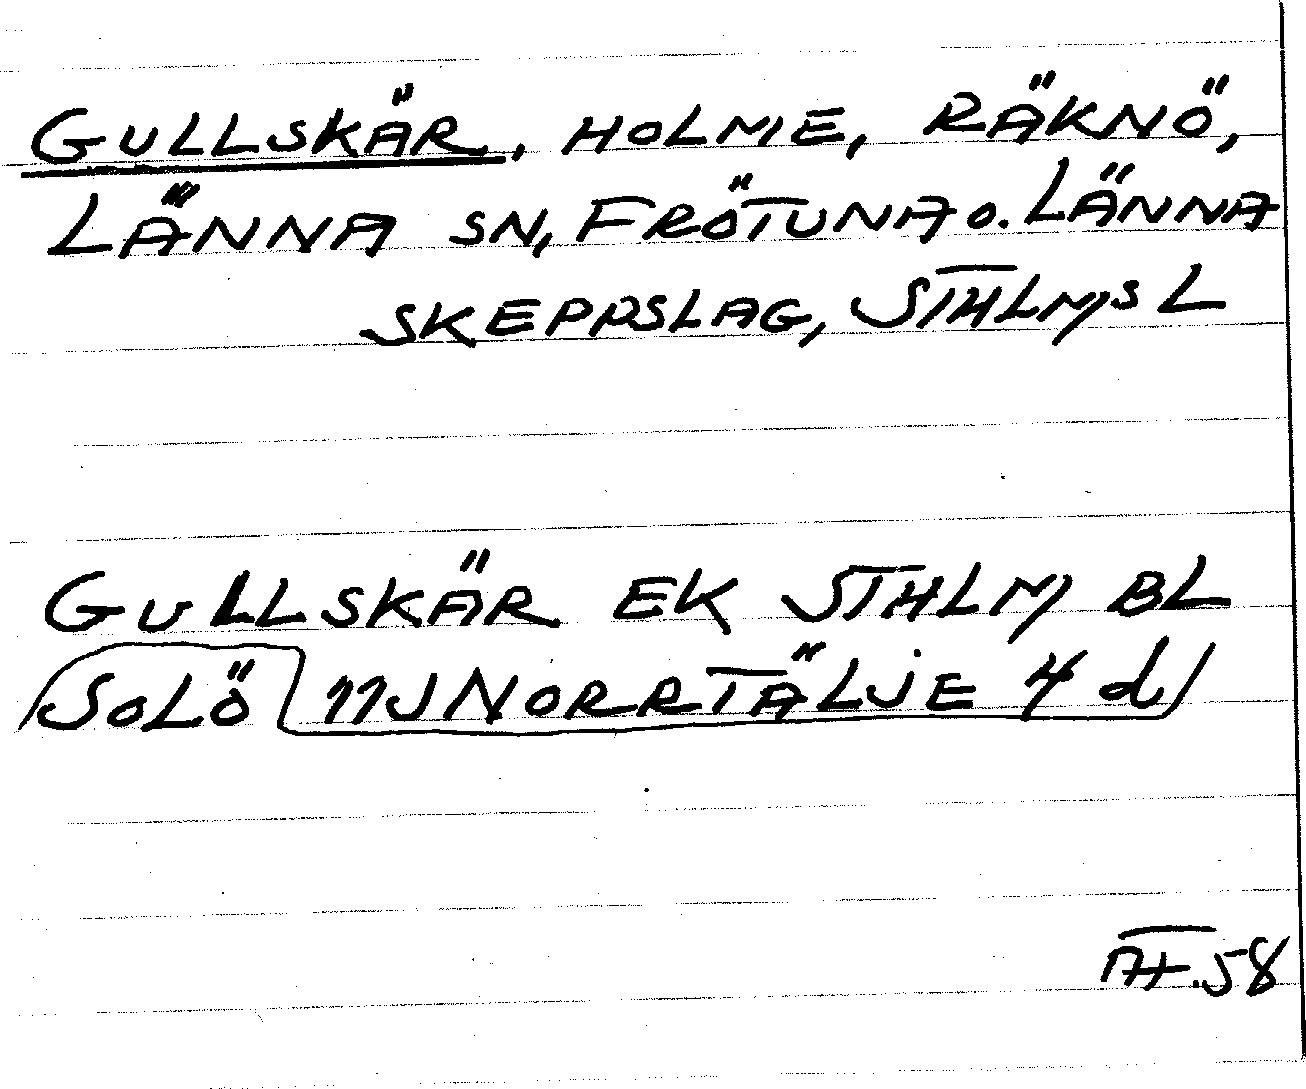 GULLSKÄR, HOLME, RÄKNÖ,
LÄNNA SN, FRÖTUNA O. LÄNNA
SKEPPSLAG, STHLMS L
GULLSKÄR EK STHLM BL
SOLÖ 11J NORRTÄLJE 4 d
AT.58